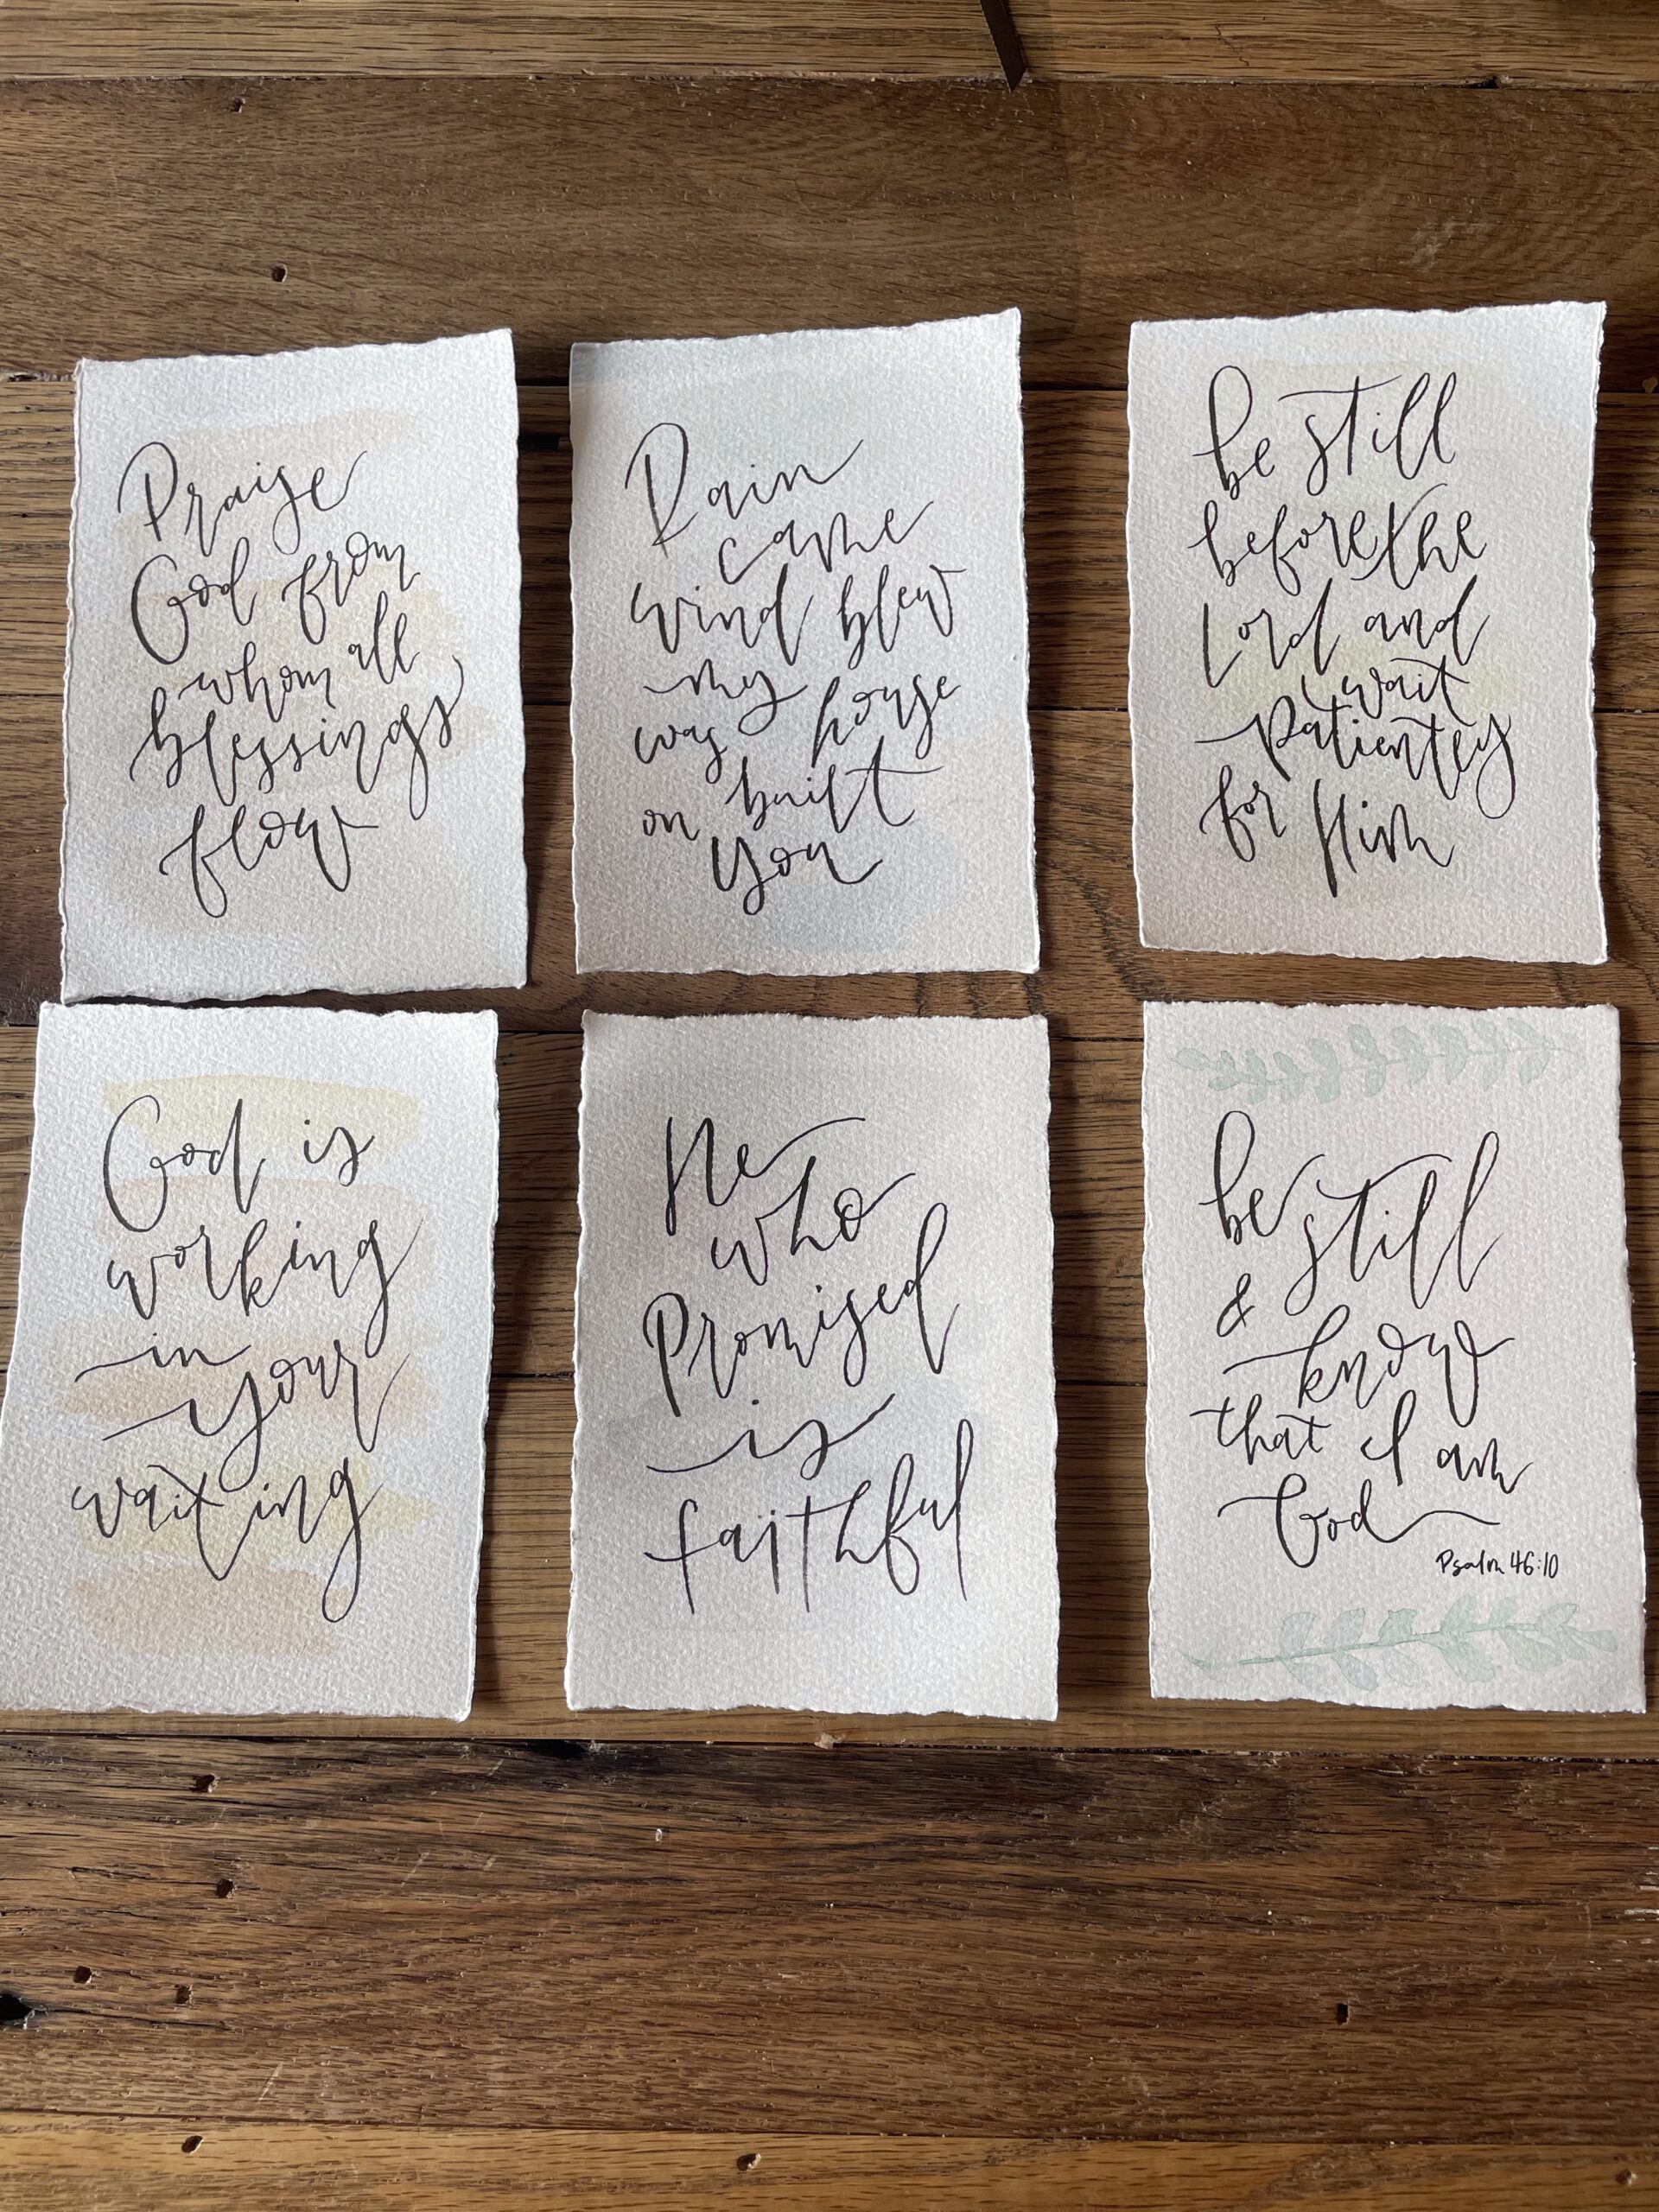 Praise
God from
whom all
blessings
flow
Rain
came
wind blew
my house
was built
on you
be still
before the
Lord and
wait
patiently
for Him
God is
working
in your
waiting
He
who
Promised
is
faithful
be still
& know
that I am
God
Psalm 46:10